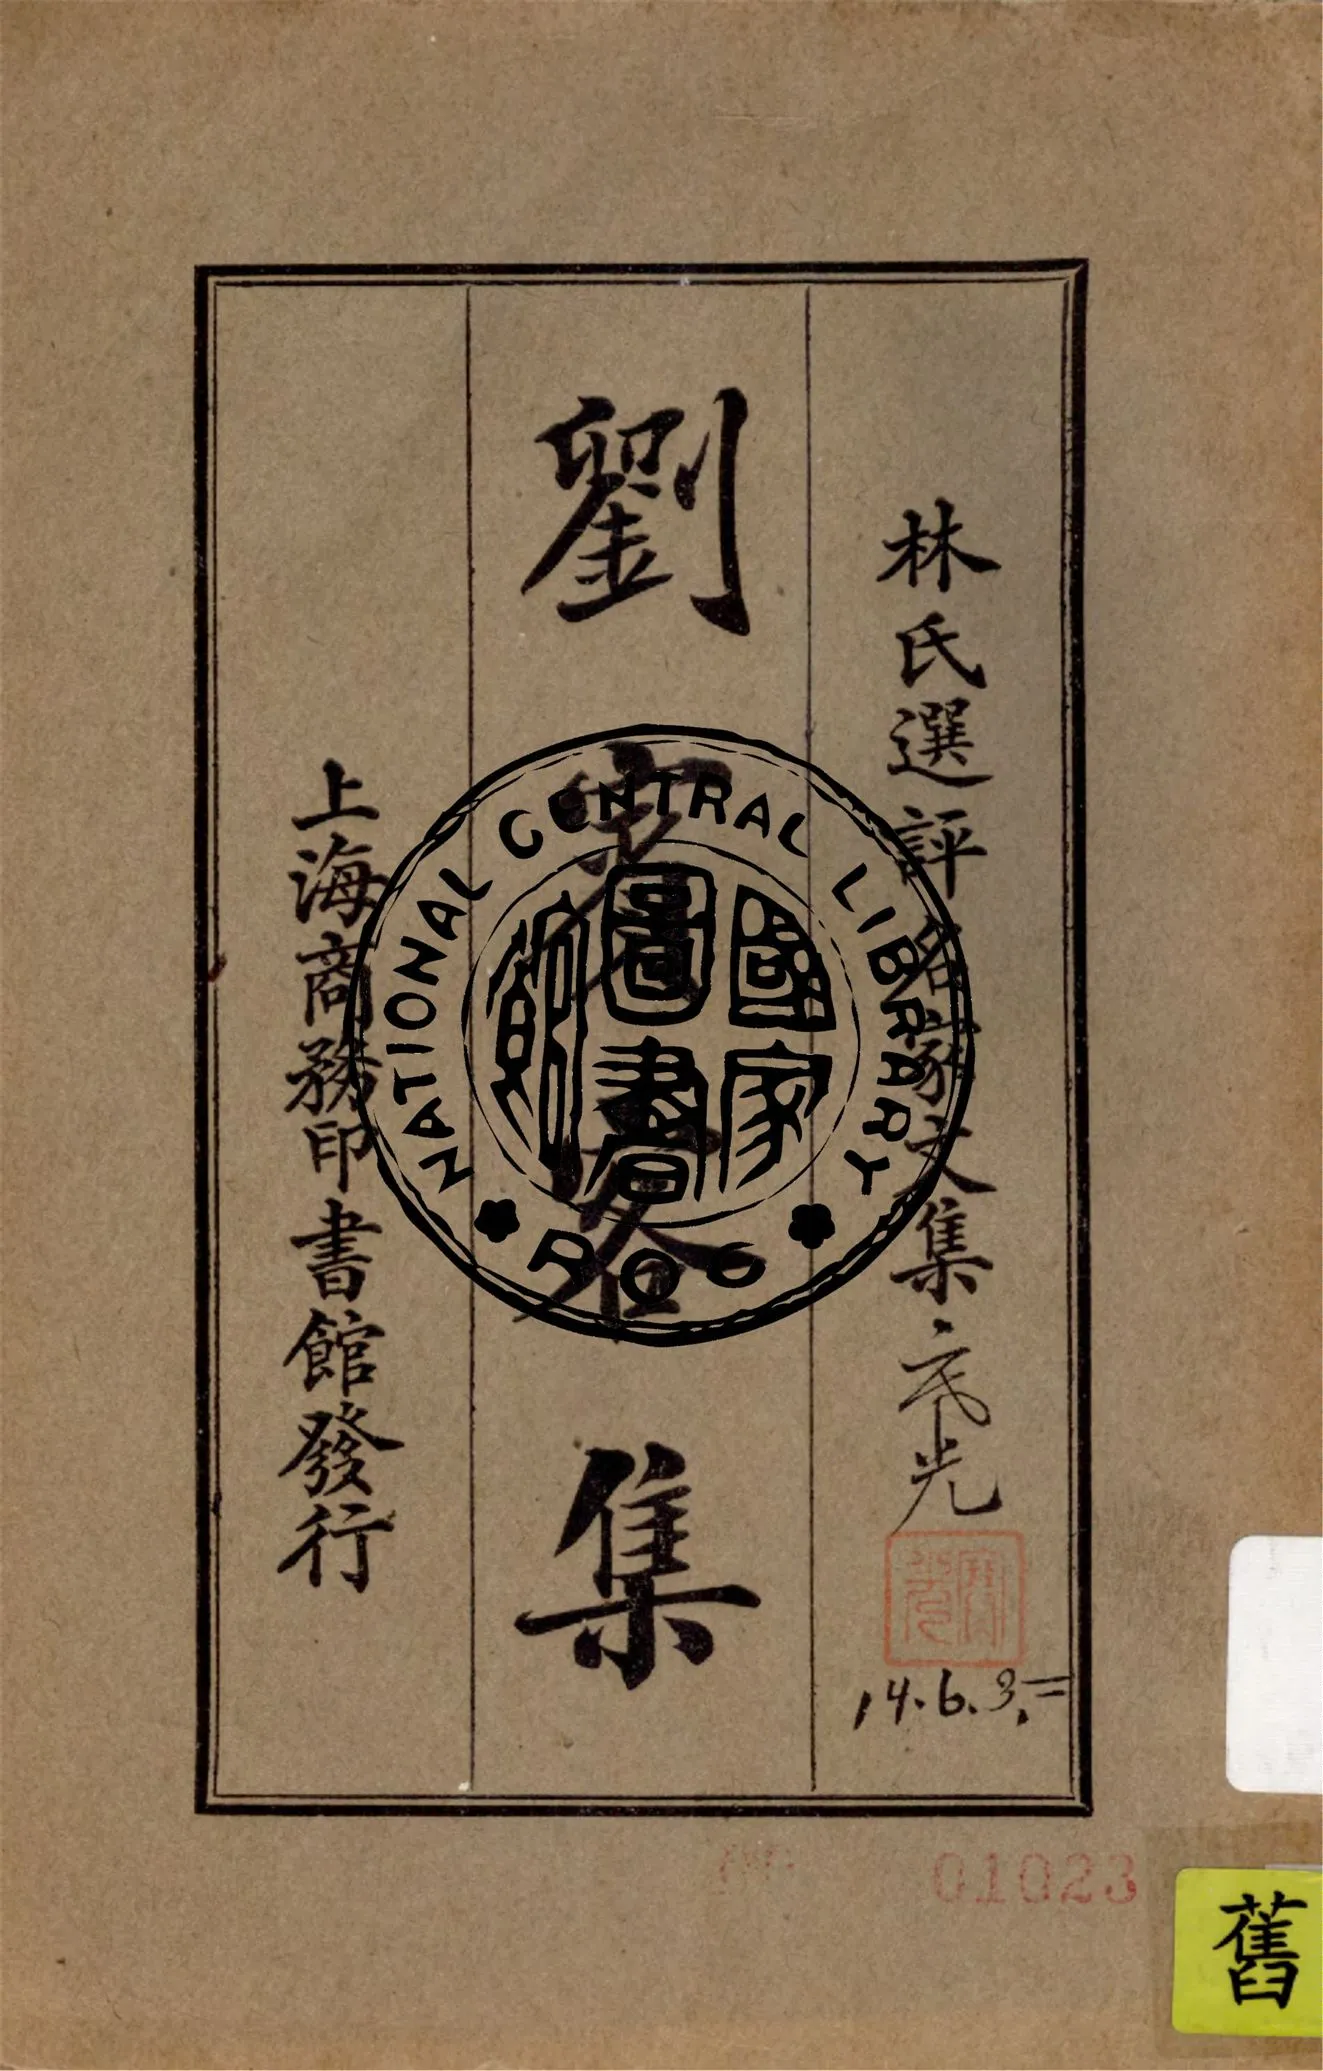 林氏選評名家文集
元光
14.6.3.
劉賓客集
上海商務印書館發行
NATIONAL CENTRAL LIBRARY
ROC
國家圖書館
01023
舊